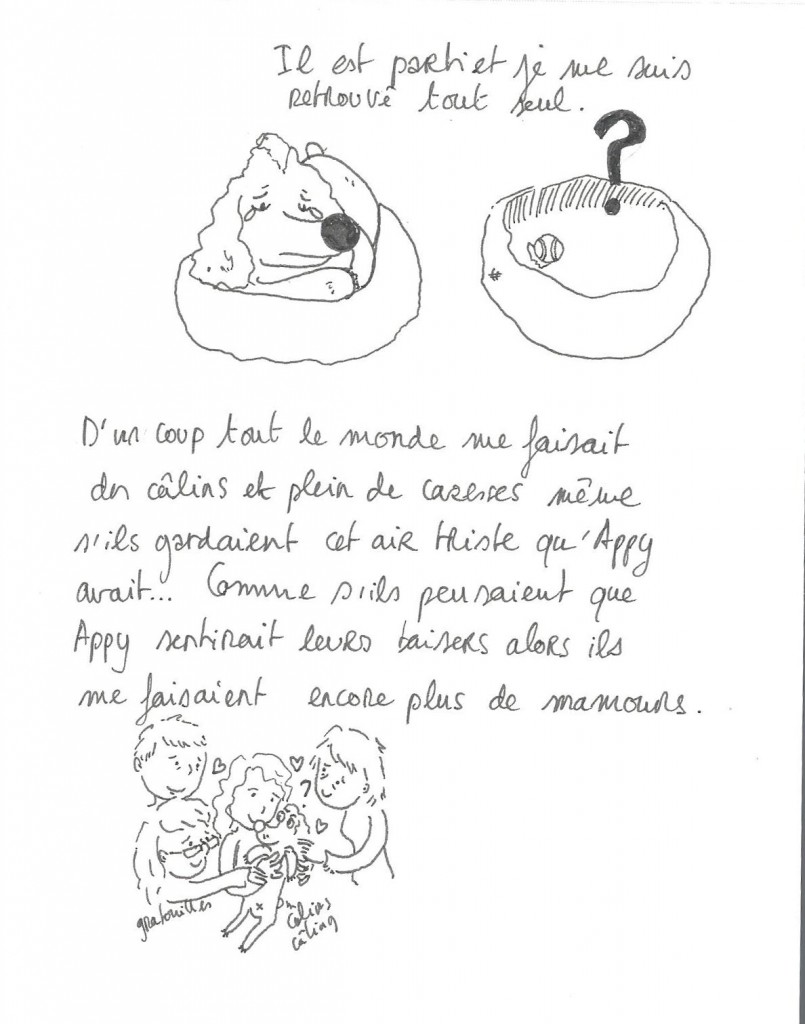 Il est parti et je me suis
retrouvé tout seul.
?
D'un coup tout le monde me faisait
des câlins et plein de caresses même
s'ils gardaient cet air triste qu'Appy
avait... Comme s'ils pensaient que
Appy sentirait leurs baisers alors ils
me faisaient encore plus de mamours.
?
gratouilles
câlins
câlins